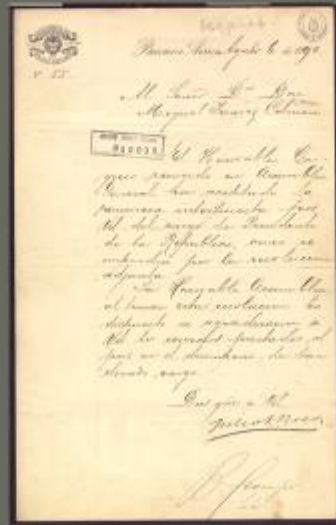 Nº 55
Buenos Aires Agosto 6 de 1890
Al Señor Dn Dor
Miguel Juarez Celman
El Honorable Con
greso reunido en Asamblea
General ha aceptado la
renuncia interpuesta por
Vd del cargo de Presidente
de la República,
por la resolucion
adjunta.
La Honorable Asamblea
al tomar esta resolucion ha
dispuesto se agradezcan á
Vd los servicios prestados al
pais en el desempeño de tan
elevado cargo.
Dios gûe á Vd
Julio A Roca